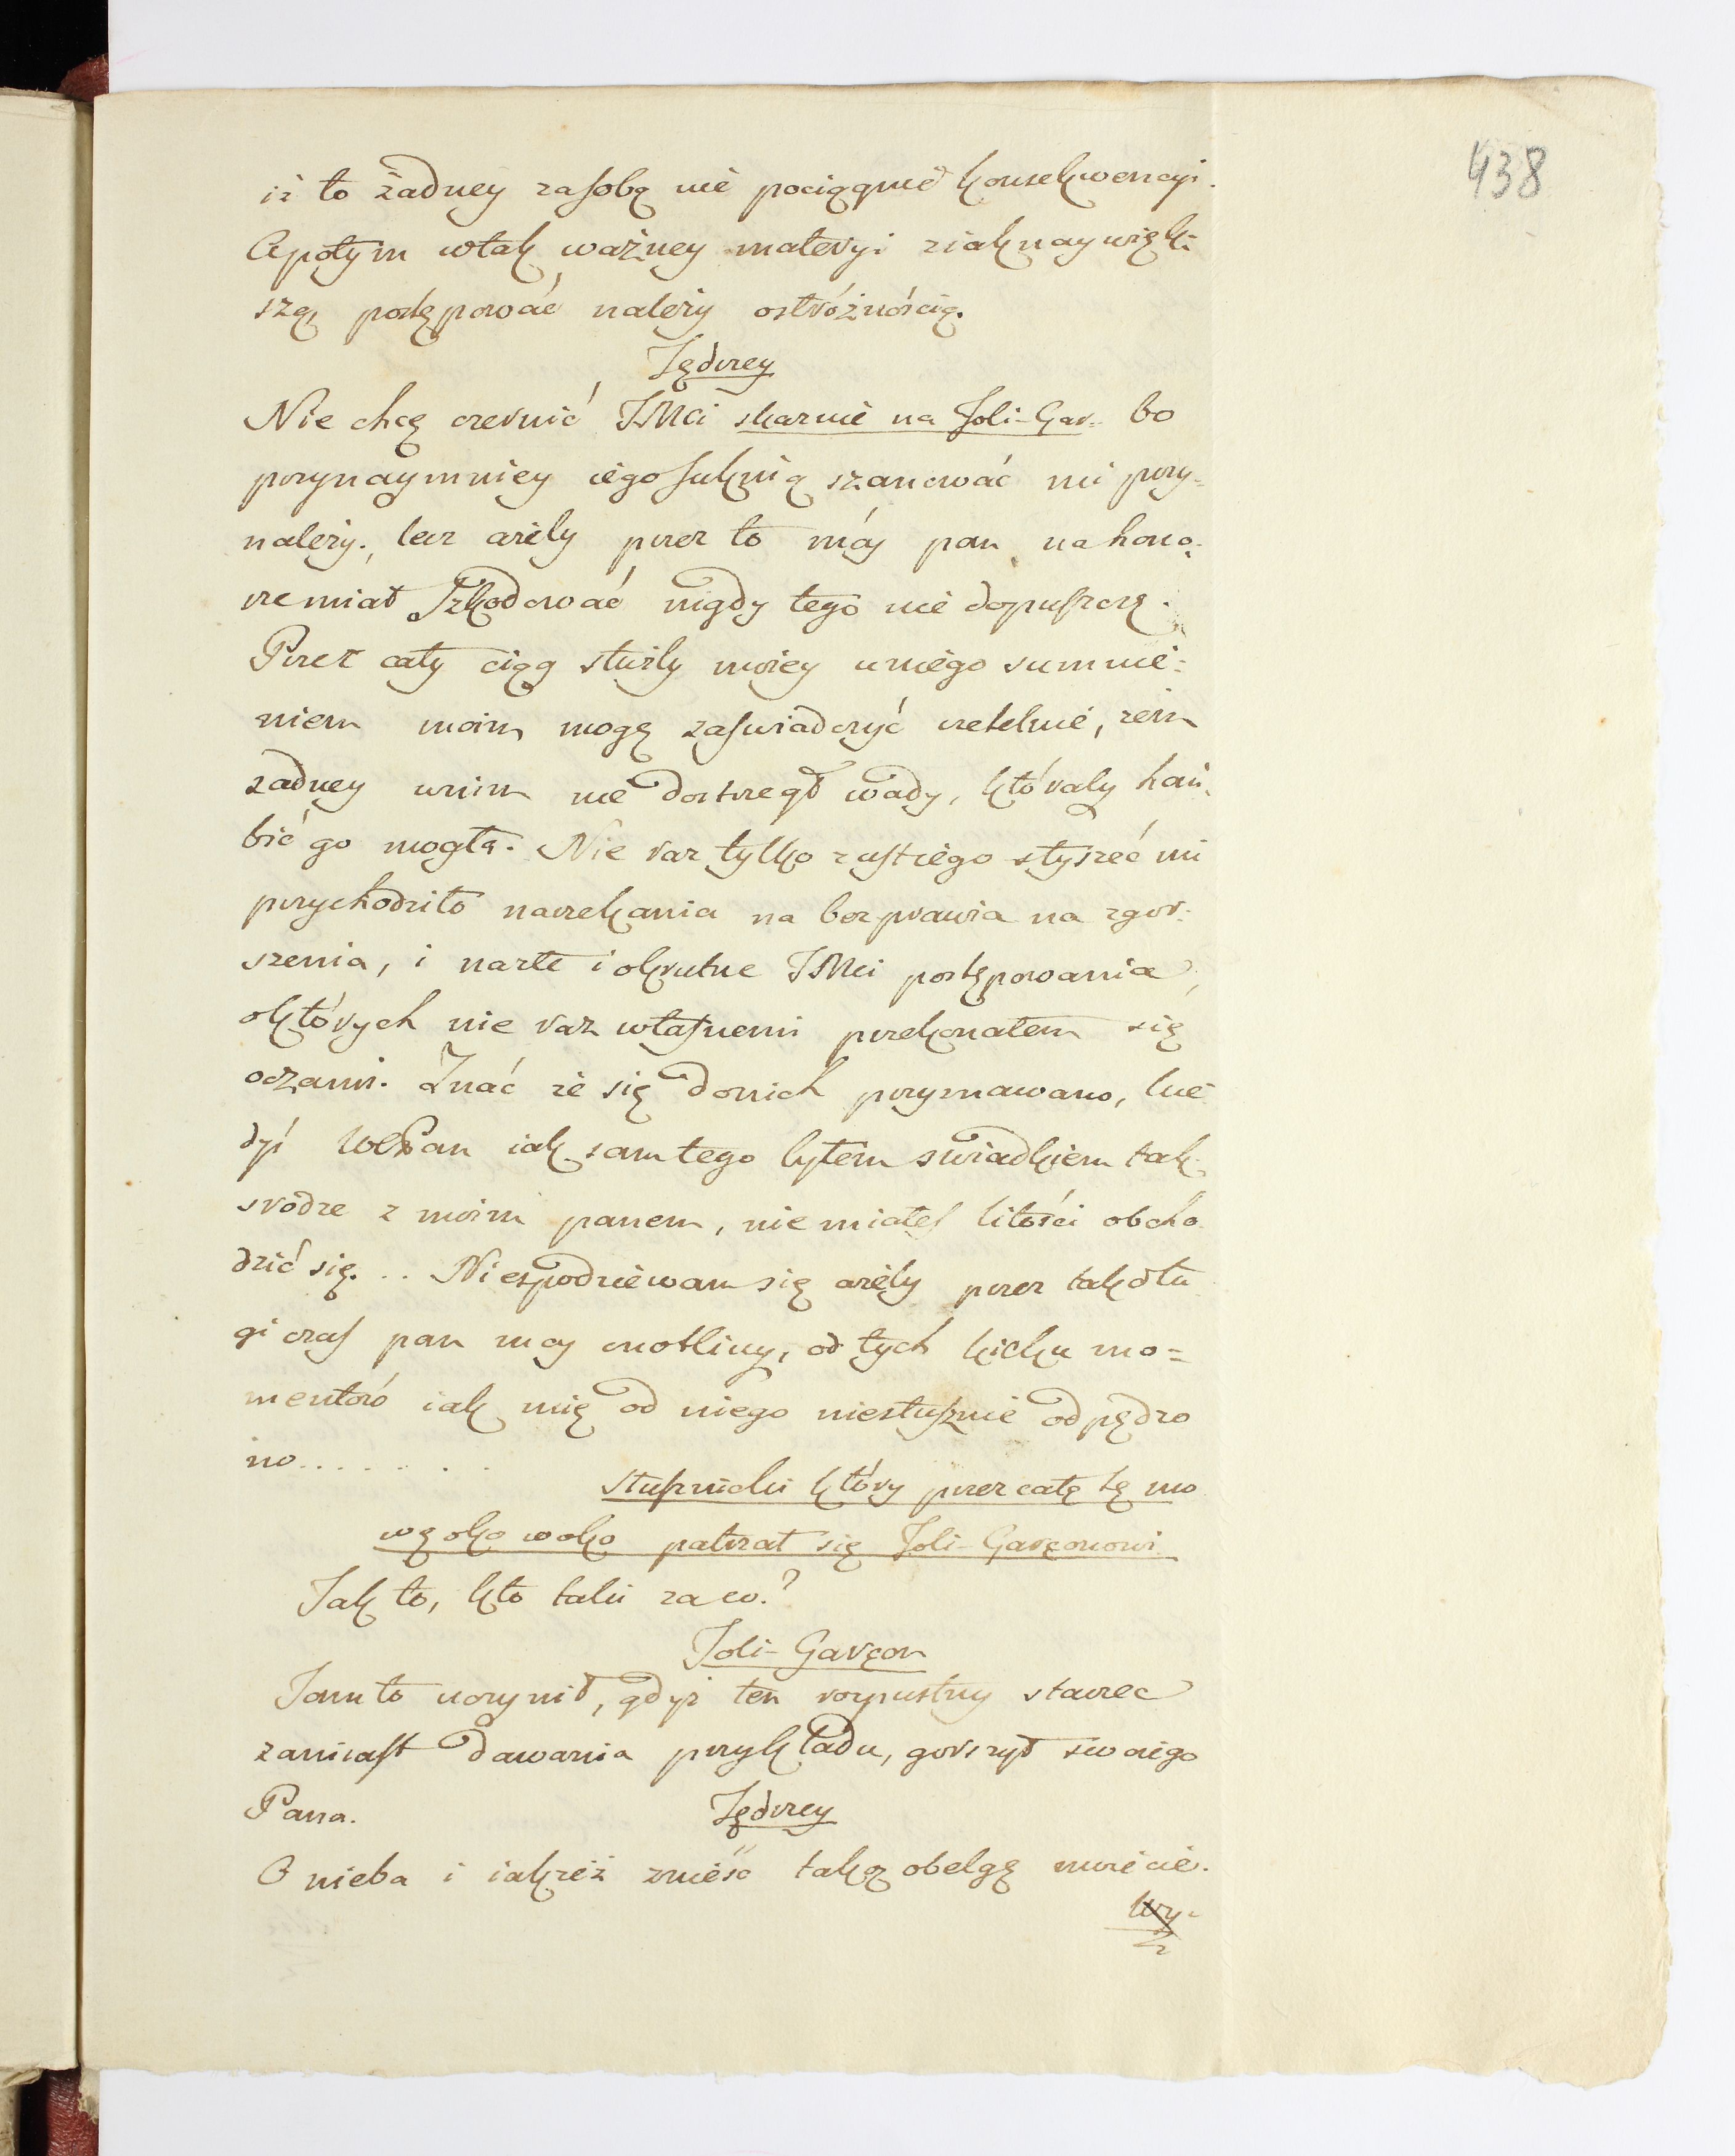 438
iż to żadney zasobą nie pociągnie konsekwencyi.
Apotym wtak ważney materyi ziaknaywięk:
szą, postępować należy ostróżnóścią.
Jędrzey
Nie chcę czernić JMci skarnie na Joli-Gar. bo
przynaymniey iego suknią szanować mi przy=
należy., lecz ażeby przez to móy pan na hono:
rze miał szkodować nigdy tego nie dopuszczę.
Przez cały ciąg służby moiey uniego summie:
niem moim mogę zaswiadczyć rzetelnie, żem
żadney wnim nie dostrzegł wady, którały hań:
bić go mogła. Nie raz tylko zustiego słyszeć mi
przychodziło narzekania na bezprawia na zgor:
szenia, i nazłe i okrutne JMci postępowania,
októrych nie raz własnemi przekonałem się
oczami. Znać że się donich przyznawano, kie
dyś WcPan iak sam tego byłem swiadkiem tak
srodze z moim panem, nie miałes litości obcho
dzić się... Niespodziewam się ażeby przez tak dłu
gi czas pan moy cnotliwy, od tych kilku mo=
mentów iak mię od niego niesłusznie odpędzo
no.......
Słusznicki który przez całą tę mo
wę oko woko patrzał się Joli-Garçonowi
Jak to, kto taki zaco?
Joli-Garçon
Jam to uczynił, gdyż ten rozpustny starzec
zamiast dawania przykładu, gorszył swoiego
Pana.
Jędrzey
O nieba i iakżeż znieść taką obelgę możecie.
Wy=